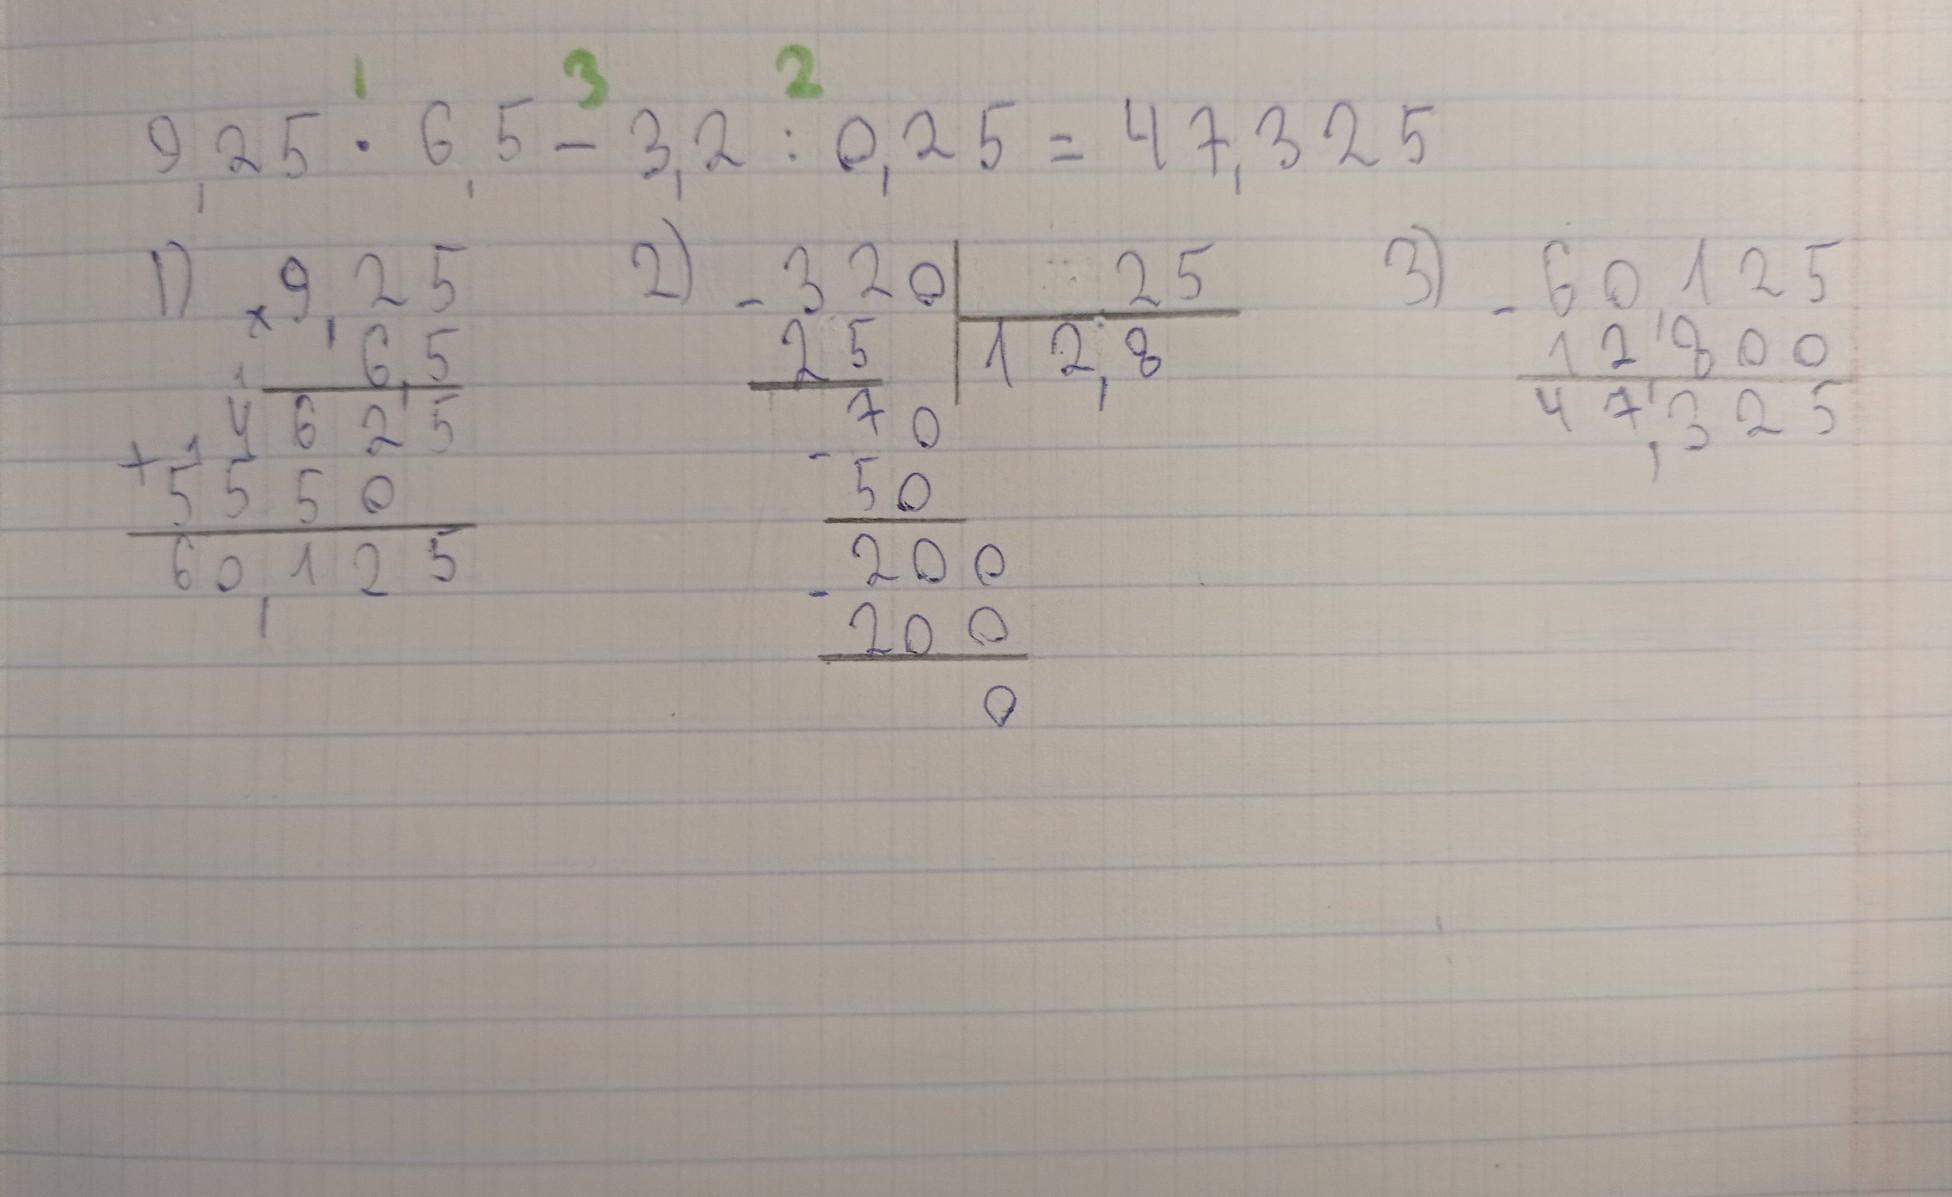 1 3 2
9,25 · 6,5 - 3,2 : 0,25 = 47,325
1) × 9,25 2) - 320 25 3) - 60,125
6,5 25 12,8 12,800
1
4625 70 47,325
+ 1 - 50
5550
60,125 200
- 200
0